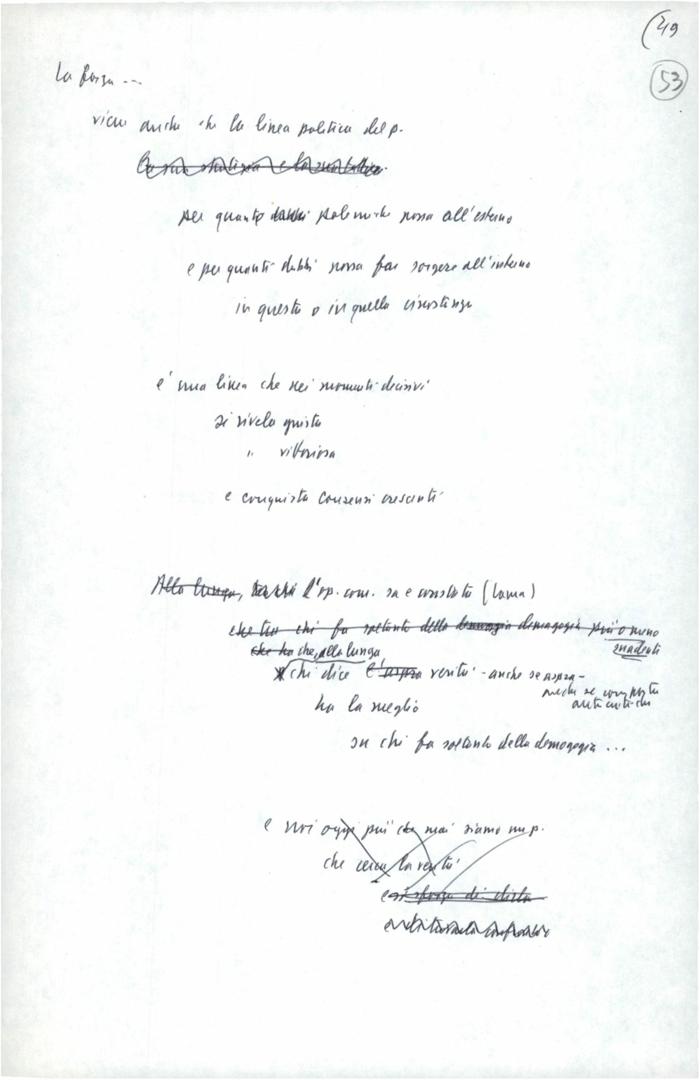 (49
53
La forza ...
viene anche che la linea politica del p.
per quante dubbi polemiche possa all'esterno
e per quanti dubbi possa far sorgere all'interno
in questa o in quella circostanza
e' una linea che nei momenti decisivi
si rivela giusta
" vittoriosa
e conquista consensi crescenti
Alla lunga, l'op. com. sa e constata (Lama)
che tra chi fa soltanto della demagogia demagogia più o meno
suadenti
che ha che, alla lunga
chi dice l'aspra verità - anche se aspra -
anche se comporta
autocritiche
ha la meglio
su chi fa soltanto della demagogia ...
e noi oggi più che mai siamo un p.
che cerca la verità
e si sforza di dirla